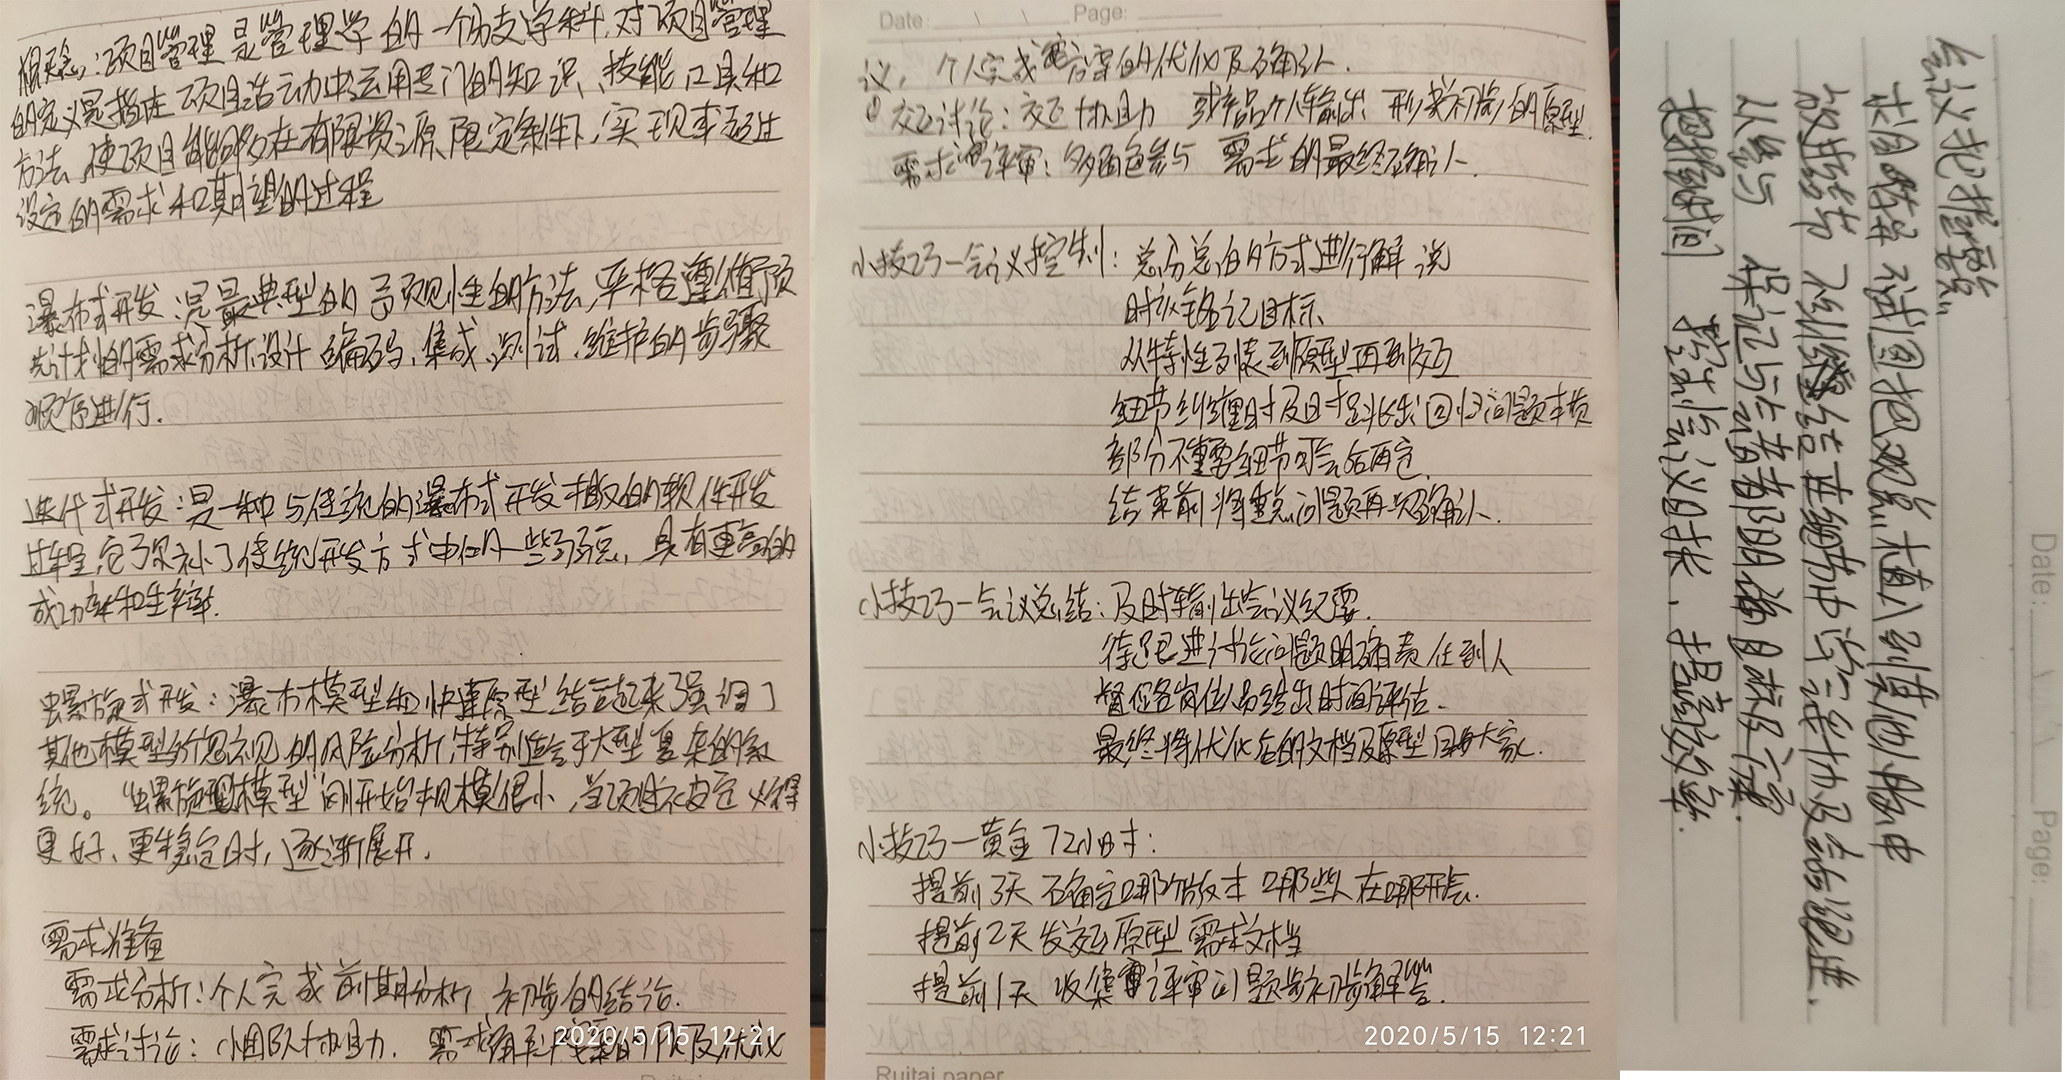 概念：项目管理是管理学的一个分支学科，对项目管理
的定义是指在项目活动中运用专门的知识、技能、工具和
方法，使项目能够在有限资源限定条件下，实现或超过
设定的需求和期望的过程
瀑布式开发：是最典型的预见性的方法，严格遵循预
先计划的需求分析、设计、编码、集成、测试、维护的步骤
顺序进行.
迭代式开发：是一种与传统的瀑布式开发相反的软件开发
过程，它弥补了传统开发方式中的一些弱点，具有更高的
成功率和生产率.
螺旋式开发：瀑布模型和快速原型结合起来，强调了
其他模型所忽视的风险分析，特别适合于大型复杂的系
统。“螺旋模型”刚开始规模很小，当项目被定义得
更好、更稳定时，逐渐展开.
需求准备
需求分析：个人完成前期分析 初步的结论.
需求讨论：小团队协助.
Date: Page:
议， 个人完成 方案的优化及确认.
交互讨论：交互协助 或产品个人输出 形成初步的原型.
需求评审：多角色参与 需求的最终确认.
小技巧—会议控制：总分总的方式进行解说
时刻铭记目标、
从特性反馈到原型再到交互
细节纠缠时及时跳出 回归问题本质
部分不重要细节可会后再定.
结束前将重点问题再次确认.
小技巧—会议总结：及时输出会议纪要.
待跟进讨论问题明确责任到人
督促各岗位 给出时间评估.
最终将优化后的文档及原型 同步大家.
小技巧—黄金72小时：
提前3天 确定哪个版本 哪些人在哪开会.
提前2天 发交互原型 需求文档
提前1天 收集 评审问题并初步解答.
2020/5/15 12:21
2020/5/15 12:21
Ruitai paper
Date: Page:
会议把握点
求同存异 试图把观点植入到其他人脑中
放眼结果 不纠结在细节中 学会妥协及总结现进.
以终为 保证与会者都明确目标及方案.
把握时间 控制会议时长、提高效率.